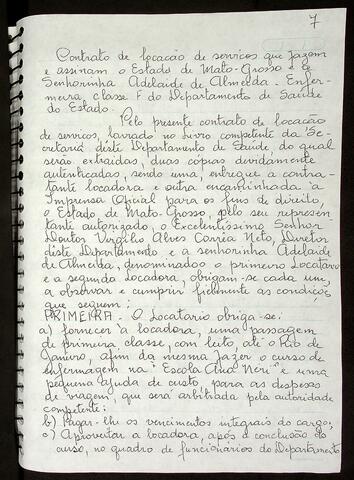 7
Contrato de locacão de servicos que fazem
e assinam o Estado de Mato-Grosso e a
Senhorinha Adelaide de Almeida - Enfer-
meira, classe F do Departamento de Saúde
do Estado.
Pelo presente contrato de locacão
de servicos, lavrado no livro competente da "Se-
cretaria deste Departamento de Saúde, do qual
serão extraidas, duas cópias devidamente
autenticadas, sendo uma, entregue a contra-
tante locadora e outra encaminhada a
Imprensa Oficial para os fins de direito,
o Estado de Mato-Grosso, pelo seu represen
tante autorizado, o Excelentissimo Senhor
Doutor Virgilio Alves Corrêa Neto, Diretor
deste Departamento e a senhorinha Adelaide
de Almeida, denominados o primeiro Locatario
e a segunda Locadora, obrigam-se cada um,
a observar e cumprir fielmente as condicões
que seguem:
PRIMEIRA - O Locatario obriga-se:
a) fornecer a locadora, uma passagem
de primeira classe, com leito, até o Rio de
Janeiro, afim da mesma fazer o curso de
enfermagem na "Escola Ana Neri" e uma
pequena ajuda de custo, para as despesas
de viagem, que será arbitrada pela autoridade
competente;
b) Pagar-lhe os vencimentos integrais do cargo;
c) Aproveitar a locadora, após a conclusão do
curso, no quadro de funcionários do Departamento